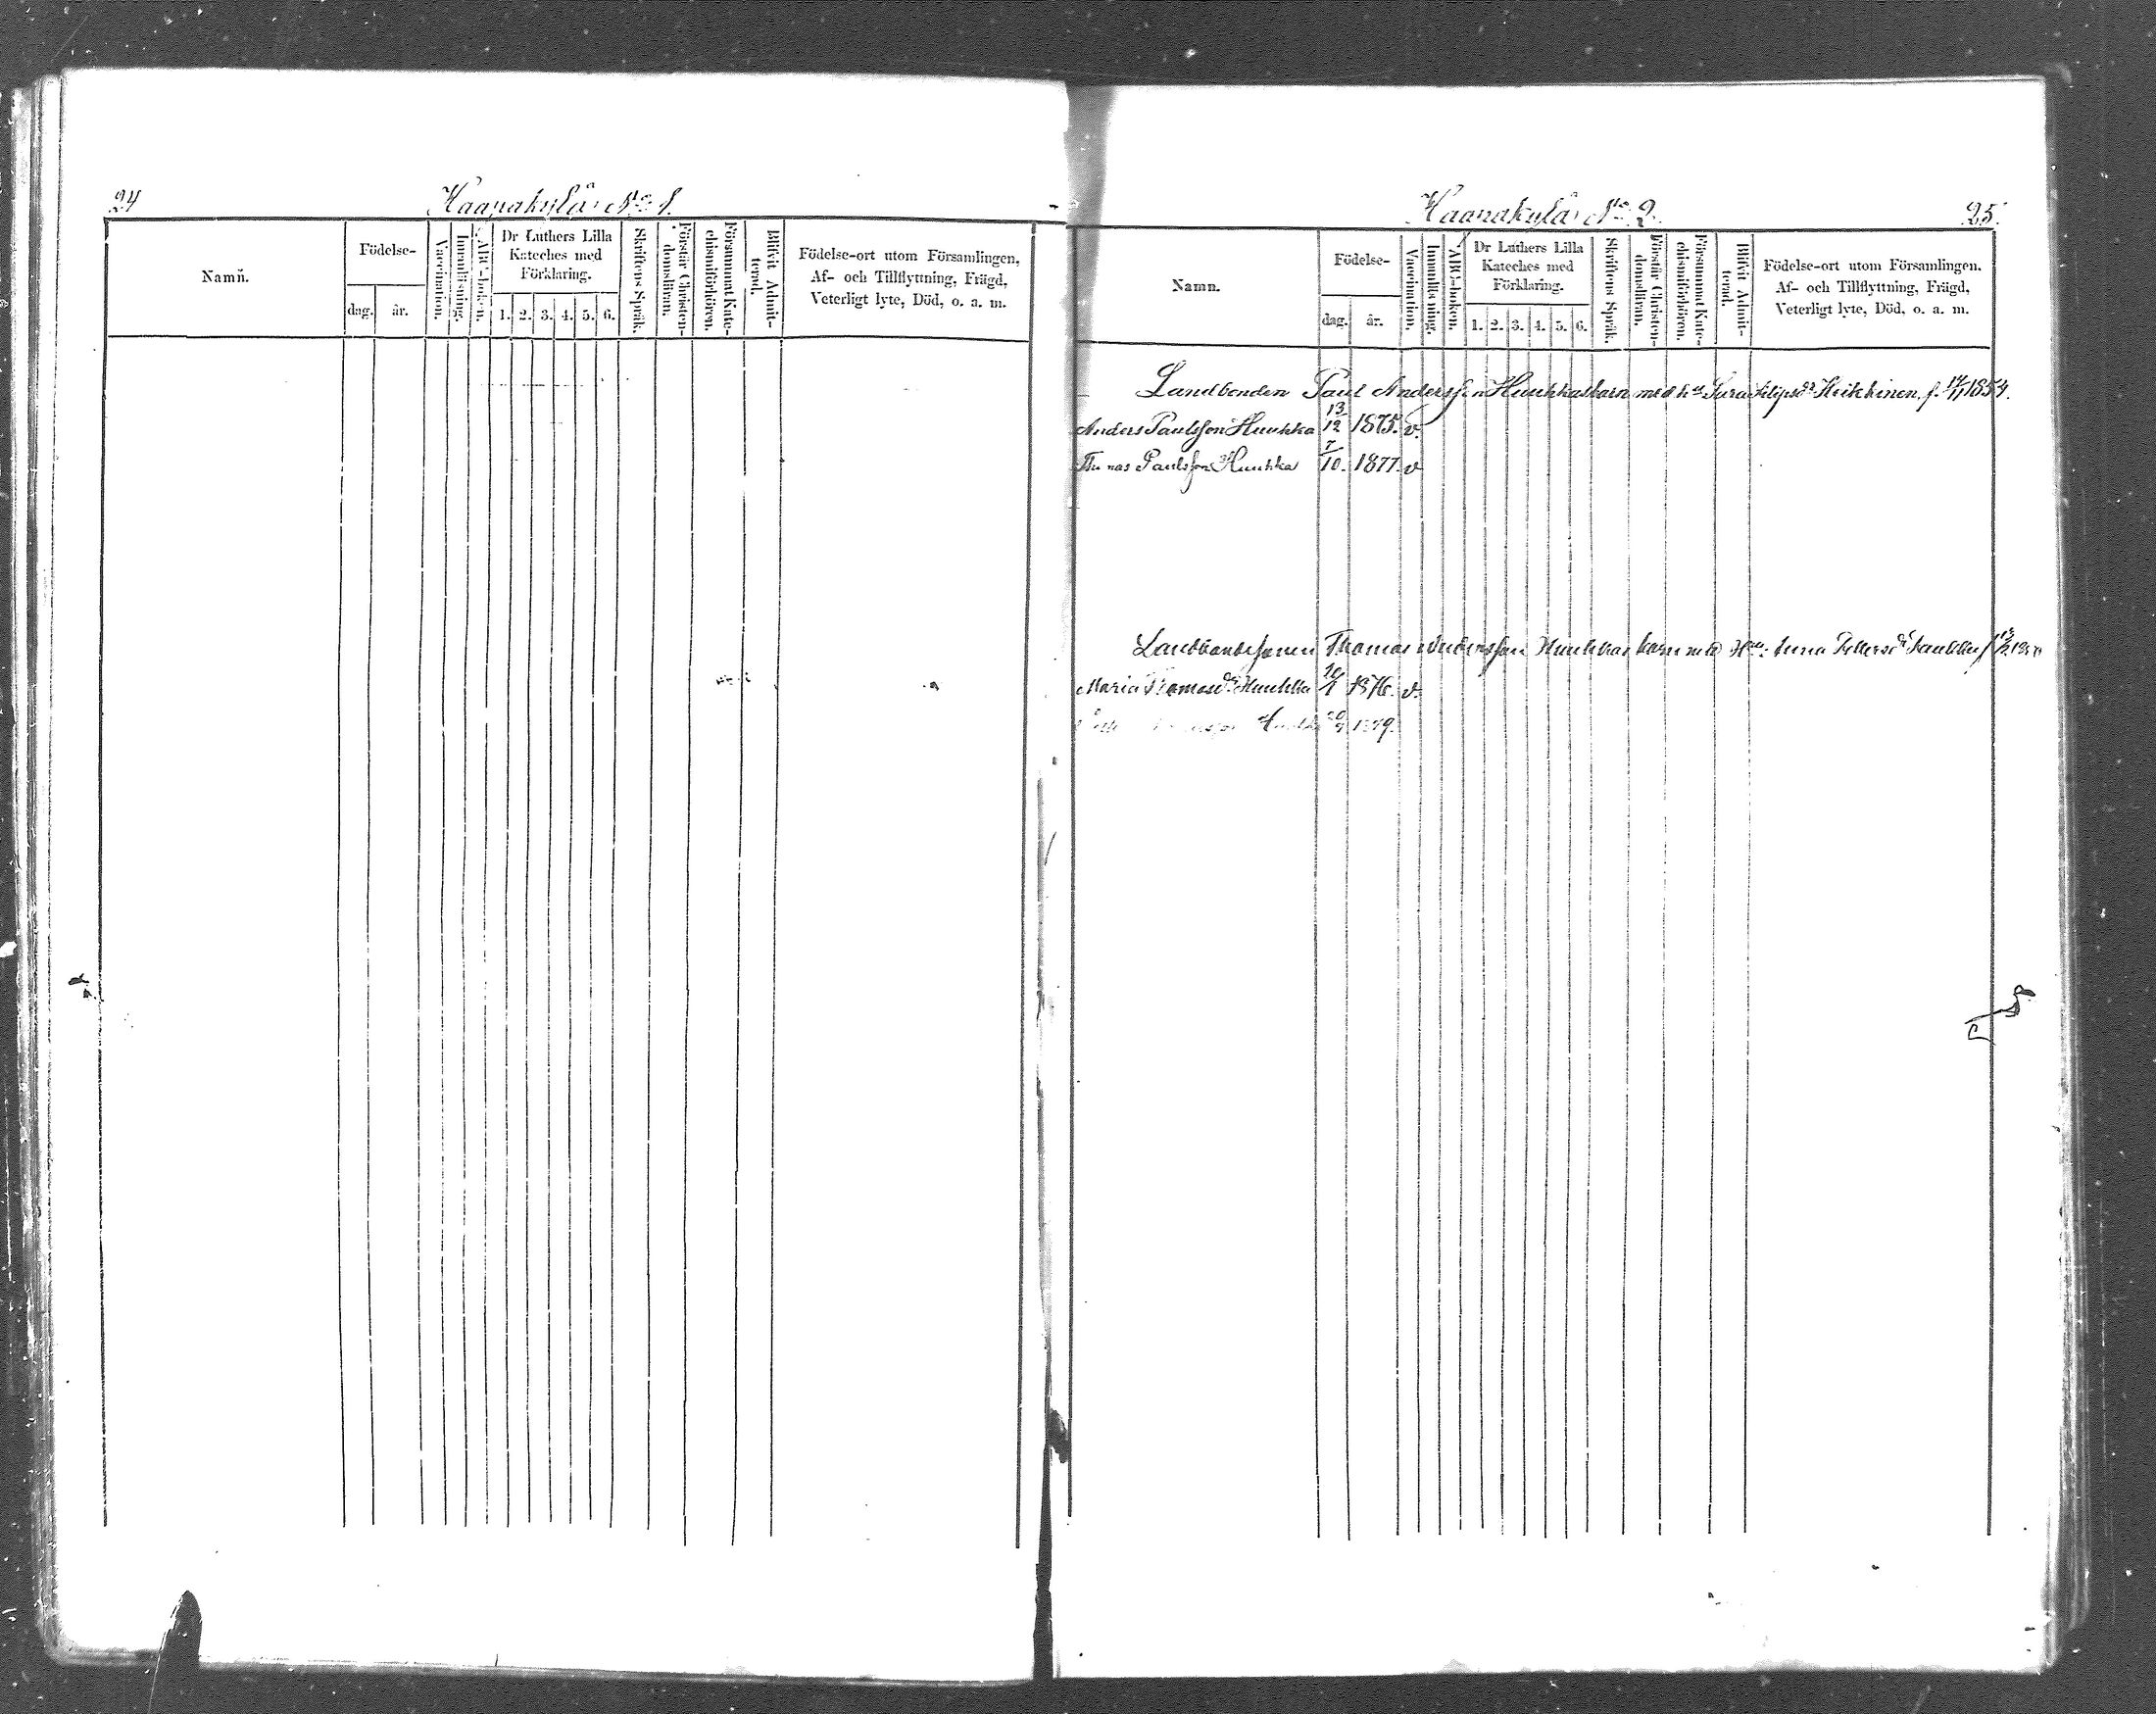 24
Haapakylä No 1.
Namn.
Födelse-
dag.
år.
Vaccination.
Innanläsning.
ABC-boken.
Dr Luthers Lilla
Kateches med
Förklaring.
1. 2. 3. 4. 5. 6.
Skriftens Språk.
Förstår Christen-
domsläran.
Försummat Kate-
chismiförhören.
Blifvit Admit-
terad.
Födelse-ort utom Församlingen,
Af- och Tillflyttning, Frägd,
Veterligt lyte, Död, o. a. m.
Haapakylä No 2.
25.
Namn.
Födelse-
dag.
år.
Vaccination.
Innanläsning.
ABC-boken.
Dr Luthers Lilla
Kateches med
Förklaring.
1. 2. 3. 4. 5. 6.
Skriftens Språk.
Förstår Christen-
domsläran.
Försummat Kate-
chismiförhören.
Blifvit Admit-
terad.
Födelse-ort utom Församlingen.
Af- och Tillflyttning, Frägd,
Veterligt lyte, Död, o. a. m.
Landbonden Paul Andersson Huuhkas barn med h. Heikkinen, f. 1854.
Anders Paulsson Huuhka 13/12 1875. v.
Thomas Paulsson Huuhka 7/10. 1877. v
Landbondesonen Thomas Andersson Huuhkas barn med Anna
Maria Thomasdr Huuhka 10/1 1876. v.
1879.